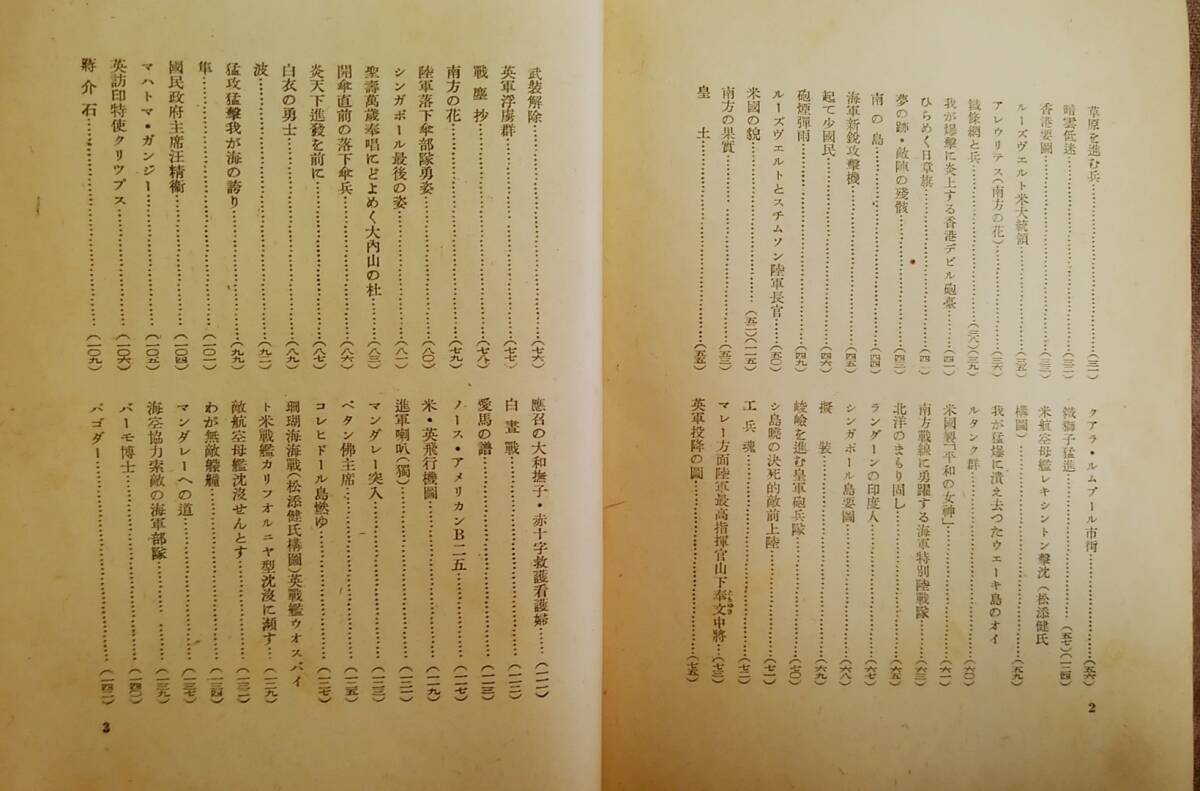 草原を進む兵……(三一)
暗雲低迷……(三二)
香港要圖……(三三)
ルーズヴエルト米大統領……(三五)
アレウリテス(南方の花)……(三六)
鐵條網と兵……(三八)(三九)
我が爆擊に炎上する香港デビル砲臺……(四一)
ひらめく日章旗……(四二)
夢の跡・敵陣の殘骸……(四三)
南の島……(四四)
海軍新銳攻擊機……(四五)
起て少國民……(四六)
砲煙彈雨……(四九)
ルーズヴエルトとスチムソン陸軍長官……(五〇)
米國の貌……(五二)(一一五)
南方の果實……(五三)
皇土……(五五)
クアラ・ルムプール市街……(五六)
鐵獅子猛進……(五七)(一二四)
米航空母艦レキシントン擊沈(松添健氏
構圖)……(五九)
我が猛爆に潰え去つたウエーキ島のオイ
ルタンク群……(六〇)
米國製「平和の女神」……(六一)
南方戰線に勇躍する海軍特別陸戰隊……(六三)
北洋のまもり固し……(六五)
ラングーンの印度人……(六七)
シンガポール島要圖……(六八)
擬裝……(六九)
峻嶮を進む皇軍砲兵隊……(七〇)
シ島曉の決死的敵前上陸……(七一)
工兵魂……(七二)
マレー方面陸軍最高指揮官山下奉文中將……(七三)
英軍投降の圖……(七五)
2
武裝解除……(七六)
英軍浮虜群……(七七)
戰塵抄……(七八)
南方の花……(七九)
陸軍落下傘部隊勇姿……(八〇)
シンガポール最後の姿……(八一)
聖壽萬歲奉唱にどよめく大內山の杜……(八三)
開傘直前の落下傘兵……(八六)
炎天下進發を前に……(八七)
白衣の勇士……(八九)
波……(九二)
猛攻猛擊我が海の誇り……(九九)
隼……(一〇二)
國民政府主席汪精衞……(一〇四)
マハトマ・ガンジー……(一〇五)
英訪印特使クリツプス……(一〇六)
蔣介石……(一〇九)
應召の大和撫子・赤十字救護看護婦……(一一一)
白晝戰……(一一三)
愛馬の譜……(一二三)
ノース・アメリカンB二五……(一一七)
米・英飛行機圖……(一一九)
進軍喇叭(獨)……(一二一)
マンダレー突入……(一二三)
ペタン佛主席……(一二五)
コレヒドール島燃ゆ……(一二七)
珊瑚海海戰(松添健氏構圖)英戰艦ウオスパイ
ト米戰艦カリフオルニヤ型沈沒に瀕す……(一二九)
敵航空母艦沈沒せんとす……(一三一)
わが無敵艨艟……(一三四)
マンダレーへの道……(一三七)
海空協力索敵の海軍部隊……(一三九)
バーモ博士……(一四〇)
パゴダー……(一四二)
3